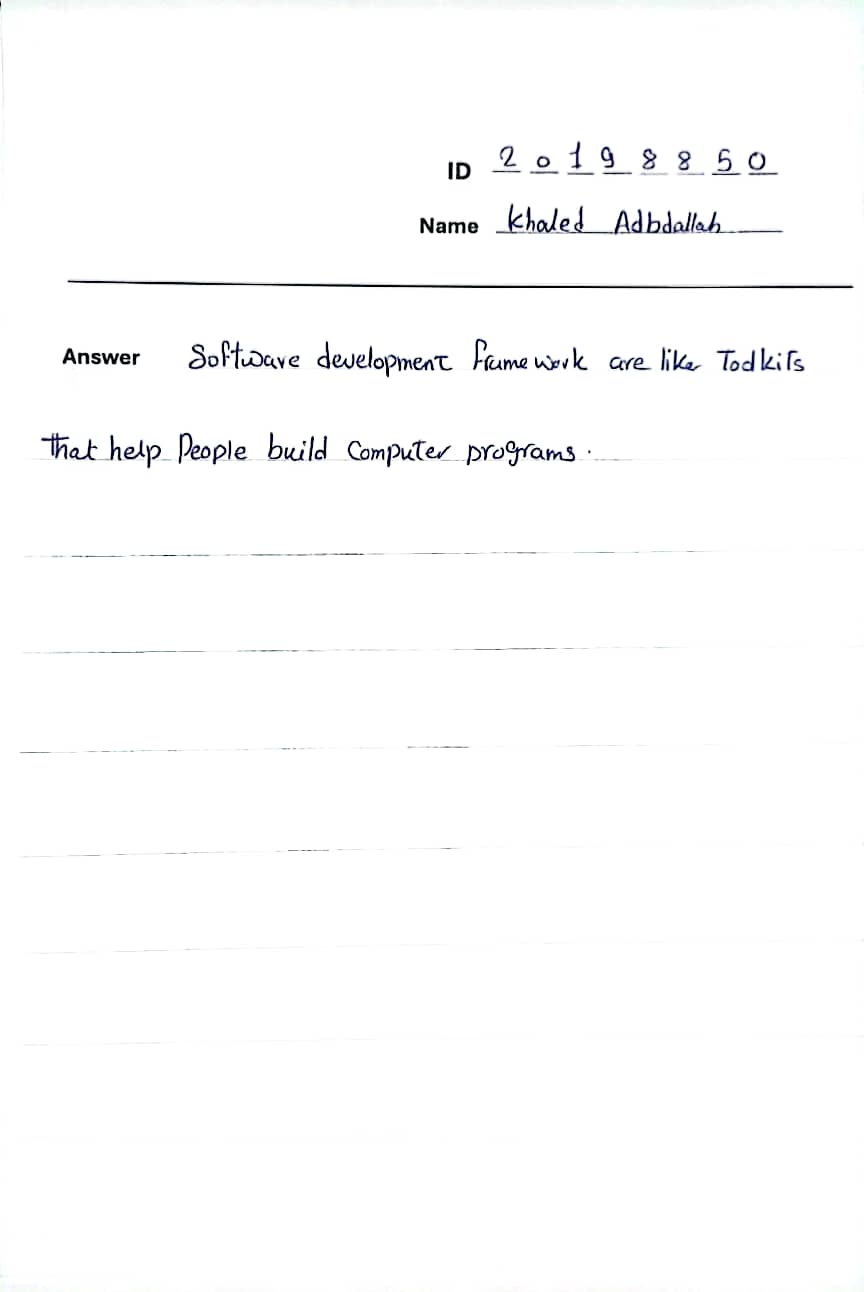 ID 20198850
Name Khaled Adbdallah
Answer Software development frame work are like Toolkits
that help People build Computer programs.